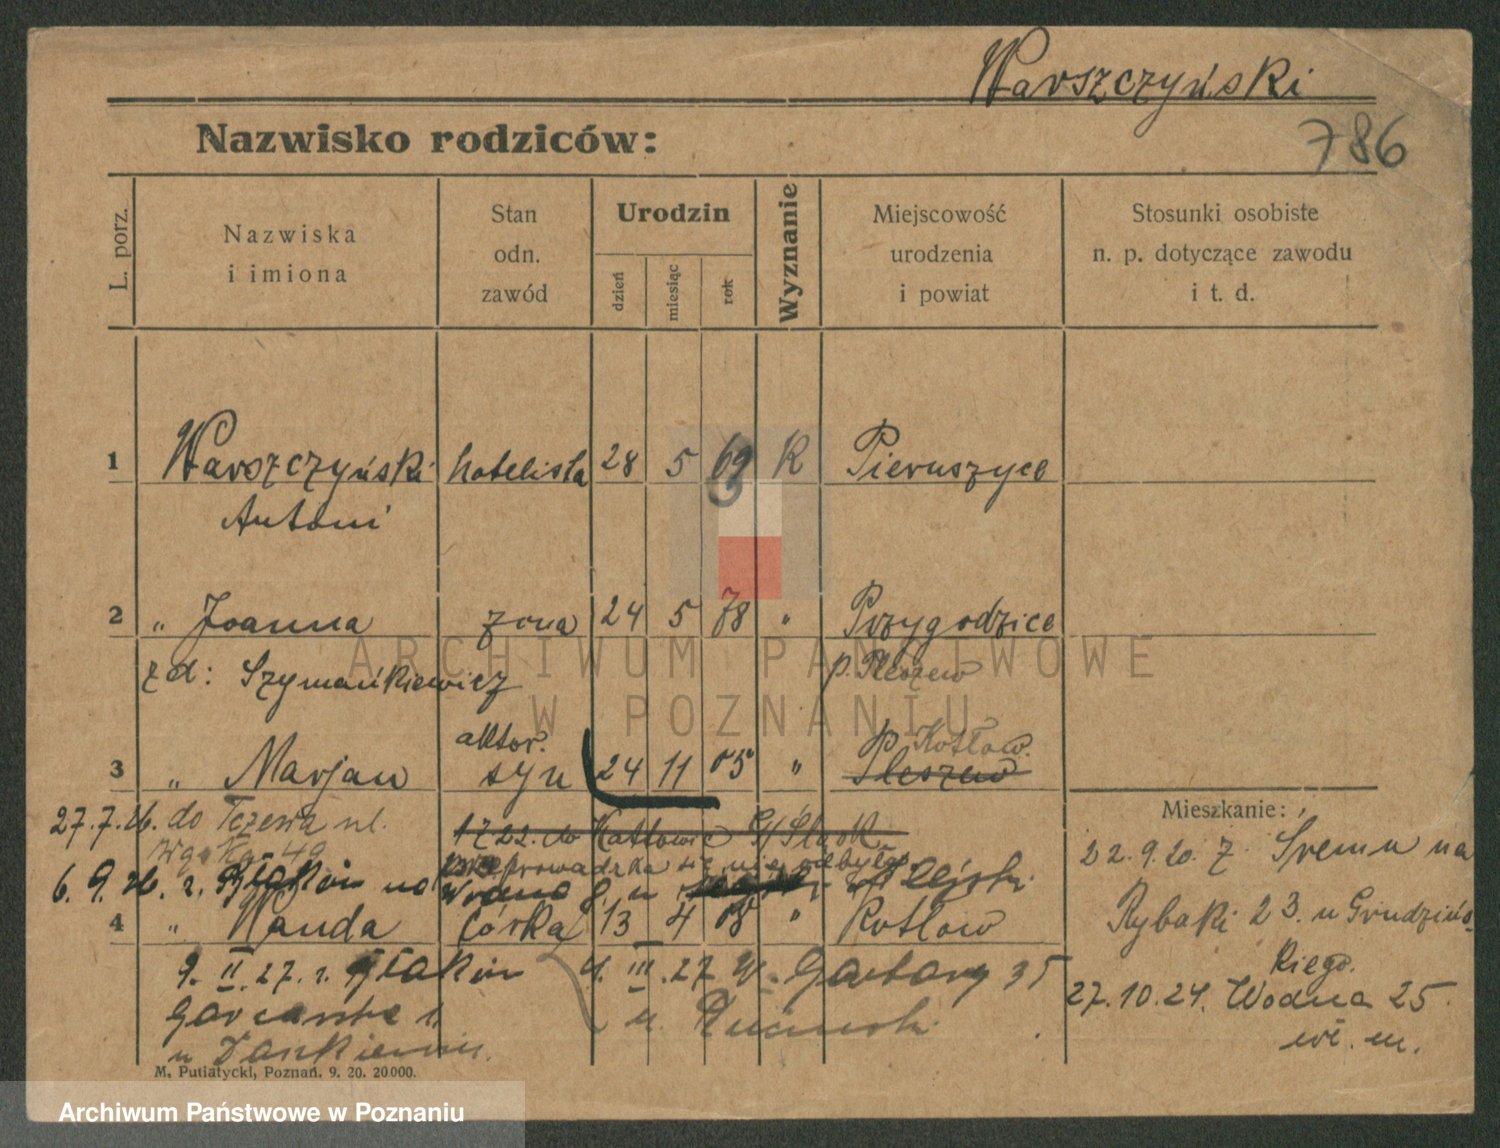 Warszczyński
786
Nazwisko rodziców:
L. porz.
Nazwiska
i imiona
Stan
odn.
zawód
Urodzin
dzień
miesiąc
rok
Wyznanie
Miejscowość
urodzenia
i powiat
Stosunki osobiste
n. p. dotyczące zawodu
i t. d.
1 Warszczyński hotelista 28 5 69 K Pieruszyce
Antoni
2 " Joanna żona 24 5 78 " Przygodzice
zd: Szymańkiewicz p. Pleszew
aktor. p. Kotłow.
3 " Marjan syn 24 11 05 " Pleszew
27.7.26. do Tczewa ul.
1 7 22. do Katowic G/Śląsk
przeprowadzka nie odbyła
6. 9. 26. z. na Wodna 8. u
4 " Wanda córka 13 4 08 " Kotłow
9. II. 27. z.
4. III. 27 W. Garbary 35
Garncarska
u
u.
Mieszkanie:
22.9.20. z Śremu na
Rybaki 23. u Grudzińs-
kiego.
27.10.24. Wodna 25
wł. m.
M. Putiatycki, Poznań. 9. 20. 20000.
ARCHIWUM PAŃSTWOWE
W POZNANIU
Archiwum Państwowe w Poznaniu